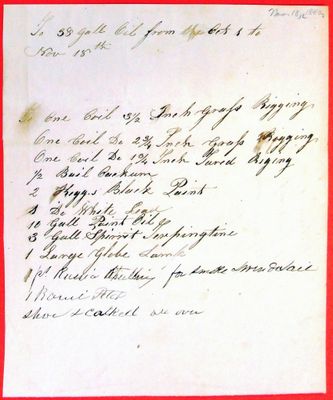 To 58 Gall Oil from the Oct 1 to
Nov 15th
To One Coil 3 1/2 Inch Grass Rigging
One Coil Do 2 3/4 Inch Grass Rigging
One Coil Do 1 3/4 Inch Tared Riging
1/2 Bail Ouckum
2 Keggs Black Paint
4 Do White Lead
10 Gall Paint Oil
3 Gall Spirrit Turpingtine
1 Large Globe Lamp
1 ps Russia for small
1 Barrel